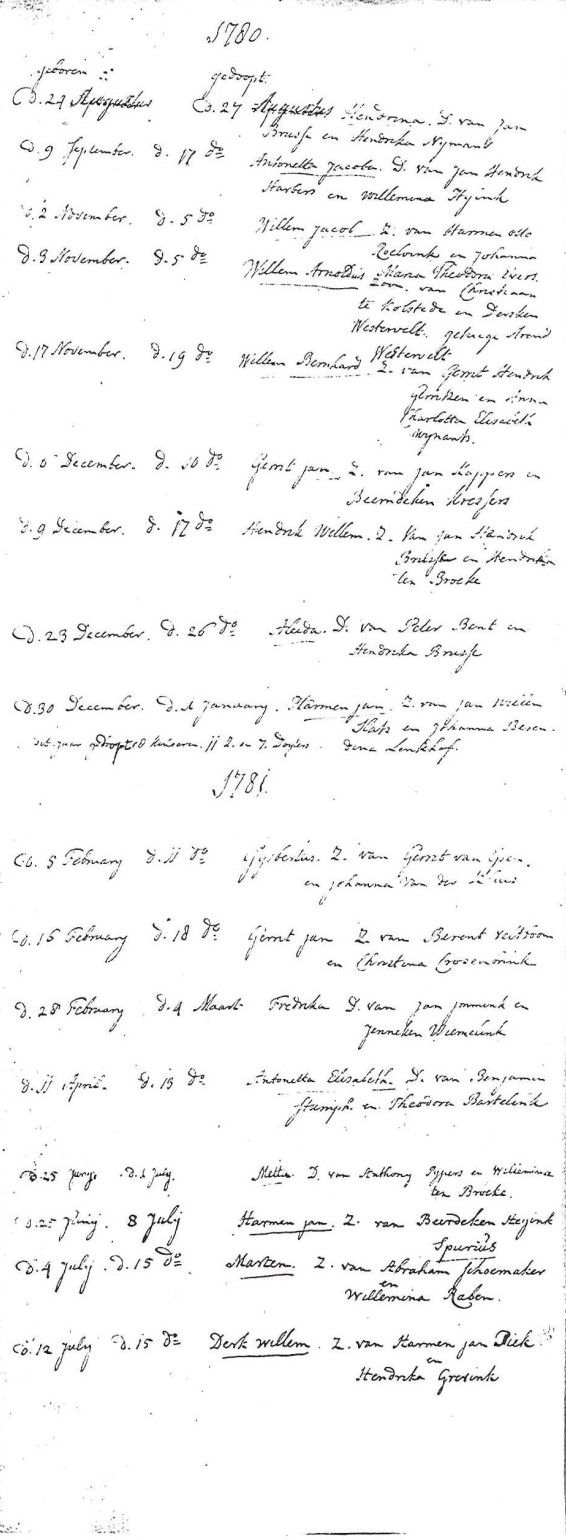 1780.
geboren :: gedoopt.
D. 24 Augustus D. 27 Augustus Hendrina. D. van Jan
Brusse en Hendrika Nymants
D. 9 September. d. 17 do Antonetta Jacoba. D. van Jan Hendrik
Harbers en Willemina Hyink
d. 2 November. d. 5 do Willem Jacob Z. van Harmen otto
Roelvink en Johanna
Maria Theodora Evers.
d. 3 November. d. 5 do Willem Arnoldus Zoon. van Christiaan
te Kolstede en Dersken
Westervelt. getuege Arend
Westervelt
d. 17 November. d. 19 do Willem Bernhard Z. van Gerrit Hendrik
Gerritzen en Anna
Charlotta Elisabeth
Wynants.
d. December. d. 10 do Gerrit Jan Z. van Jan Kappers en
Beerndeken
d. 9 December. d. 17 do Hendrik Willem. Z. van Jan Hendrik
Brusse en Hendrika
ten Broeke
D. 23 December. d. 26 do Aleida. D. van Peter Bent en
Hendrika Brusse
D. 30 December. d. 1 January. Harmen Jan. Z. van Jan Willem
en Johanna Beren-
dina Lenkhof.
dit jaar gedoopt 18 kinderen. 11 Z. en 7. Dogters
1781.
D. 5 February d. 11 do Gysbertus. Z. van Gerrit van Essen.
en Johanna van der
D. 15 February d. 18 do Gerrit Jan Z. van Berent
en Christina
d. 28 February d. 4 Maart Fredrika D. van Jan en
Jenneken Wemeunk
d. 11 April. d. 15 do Antonetta Elisabeth. D. van Benjamin
Stumph. en Theodora Bartelink
D. 25 Juny. d. 1 July. Metta D. van Anthony Pypers en Willemina
ten Broeke.
D. 25 Juny 8 July Harmen Jan. Z. van Beerdeken Heyink
Spurius
D. 4 July d. 15 do Marten. Z. van Abraham Schoemaker
en
Willemina Raben.
D. 12 July d. 15 do Derk Willem. Z. van Harmen Jan Diek
en
Hendrika Gresink